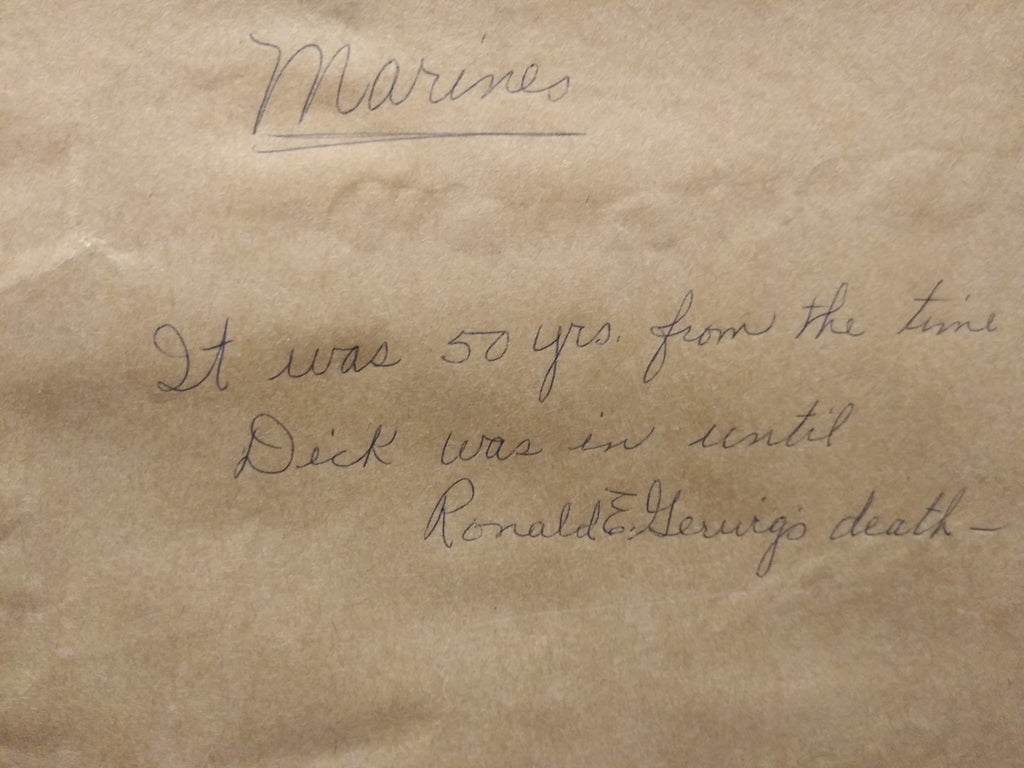 Marines
It was 50 yrs. from the time
Dick was in until
Ronald E. Gerwig's death –